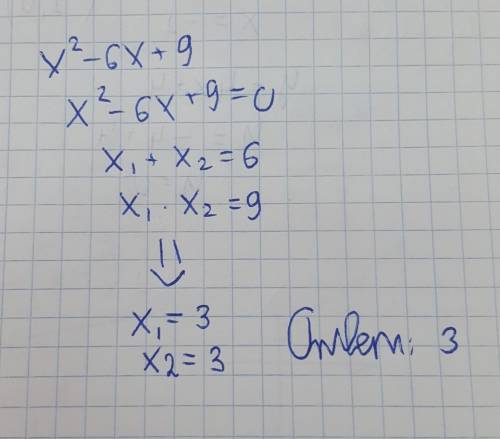 x² - 6x + 9
x² - 6x + 9 = 0
x₁ + x₂ = 6
x₁ · x₂ = 9
⇓
x₁ = 3
x2 = 3
Ответ: 3